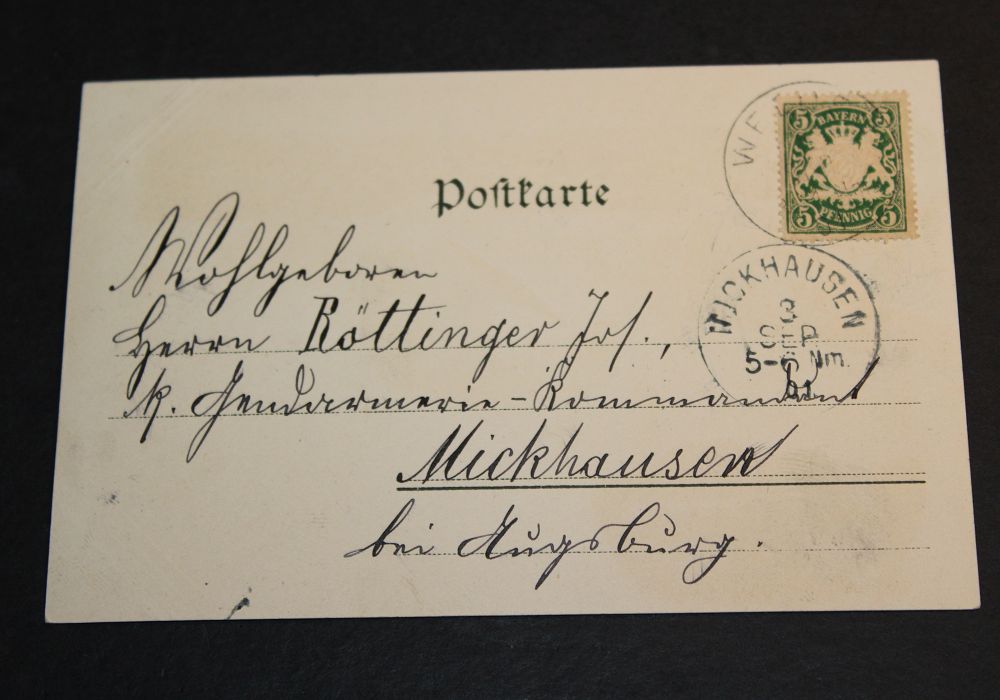 Postkarte
5 BAYERN 5
5 PFENNIG 5
MICKHAUSEN
5-6 Nm.
01
Wohlgeboren
Herrn Röttinger Jos.,
k. Gendarmerie-Kommandant
Mickhausen
bei Augsburg.